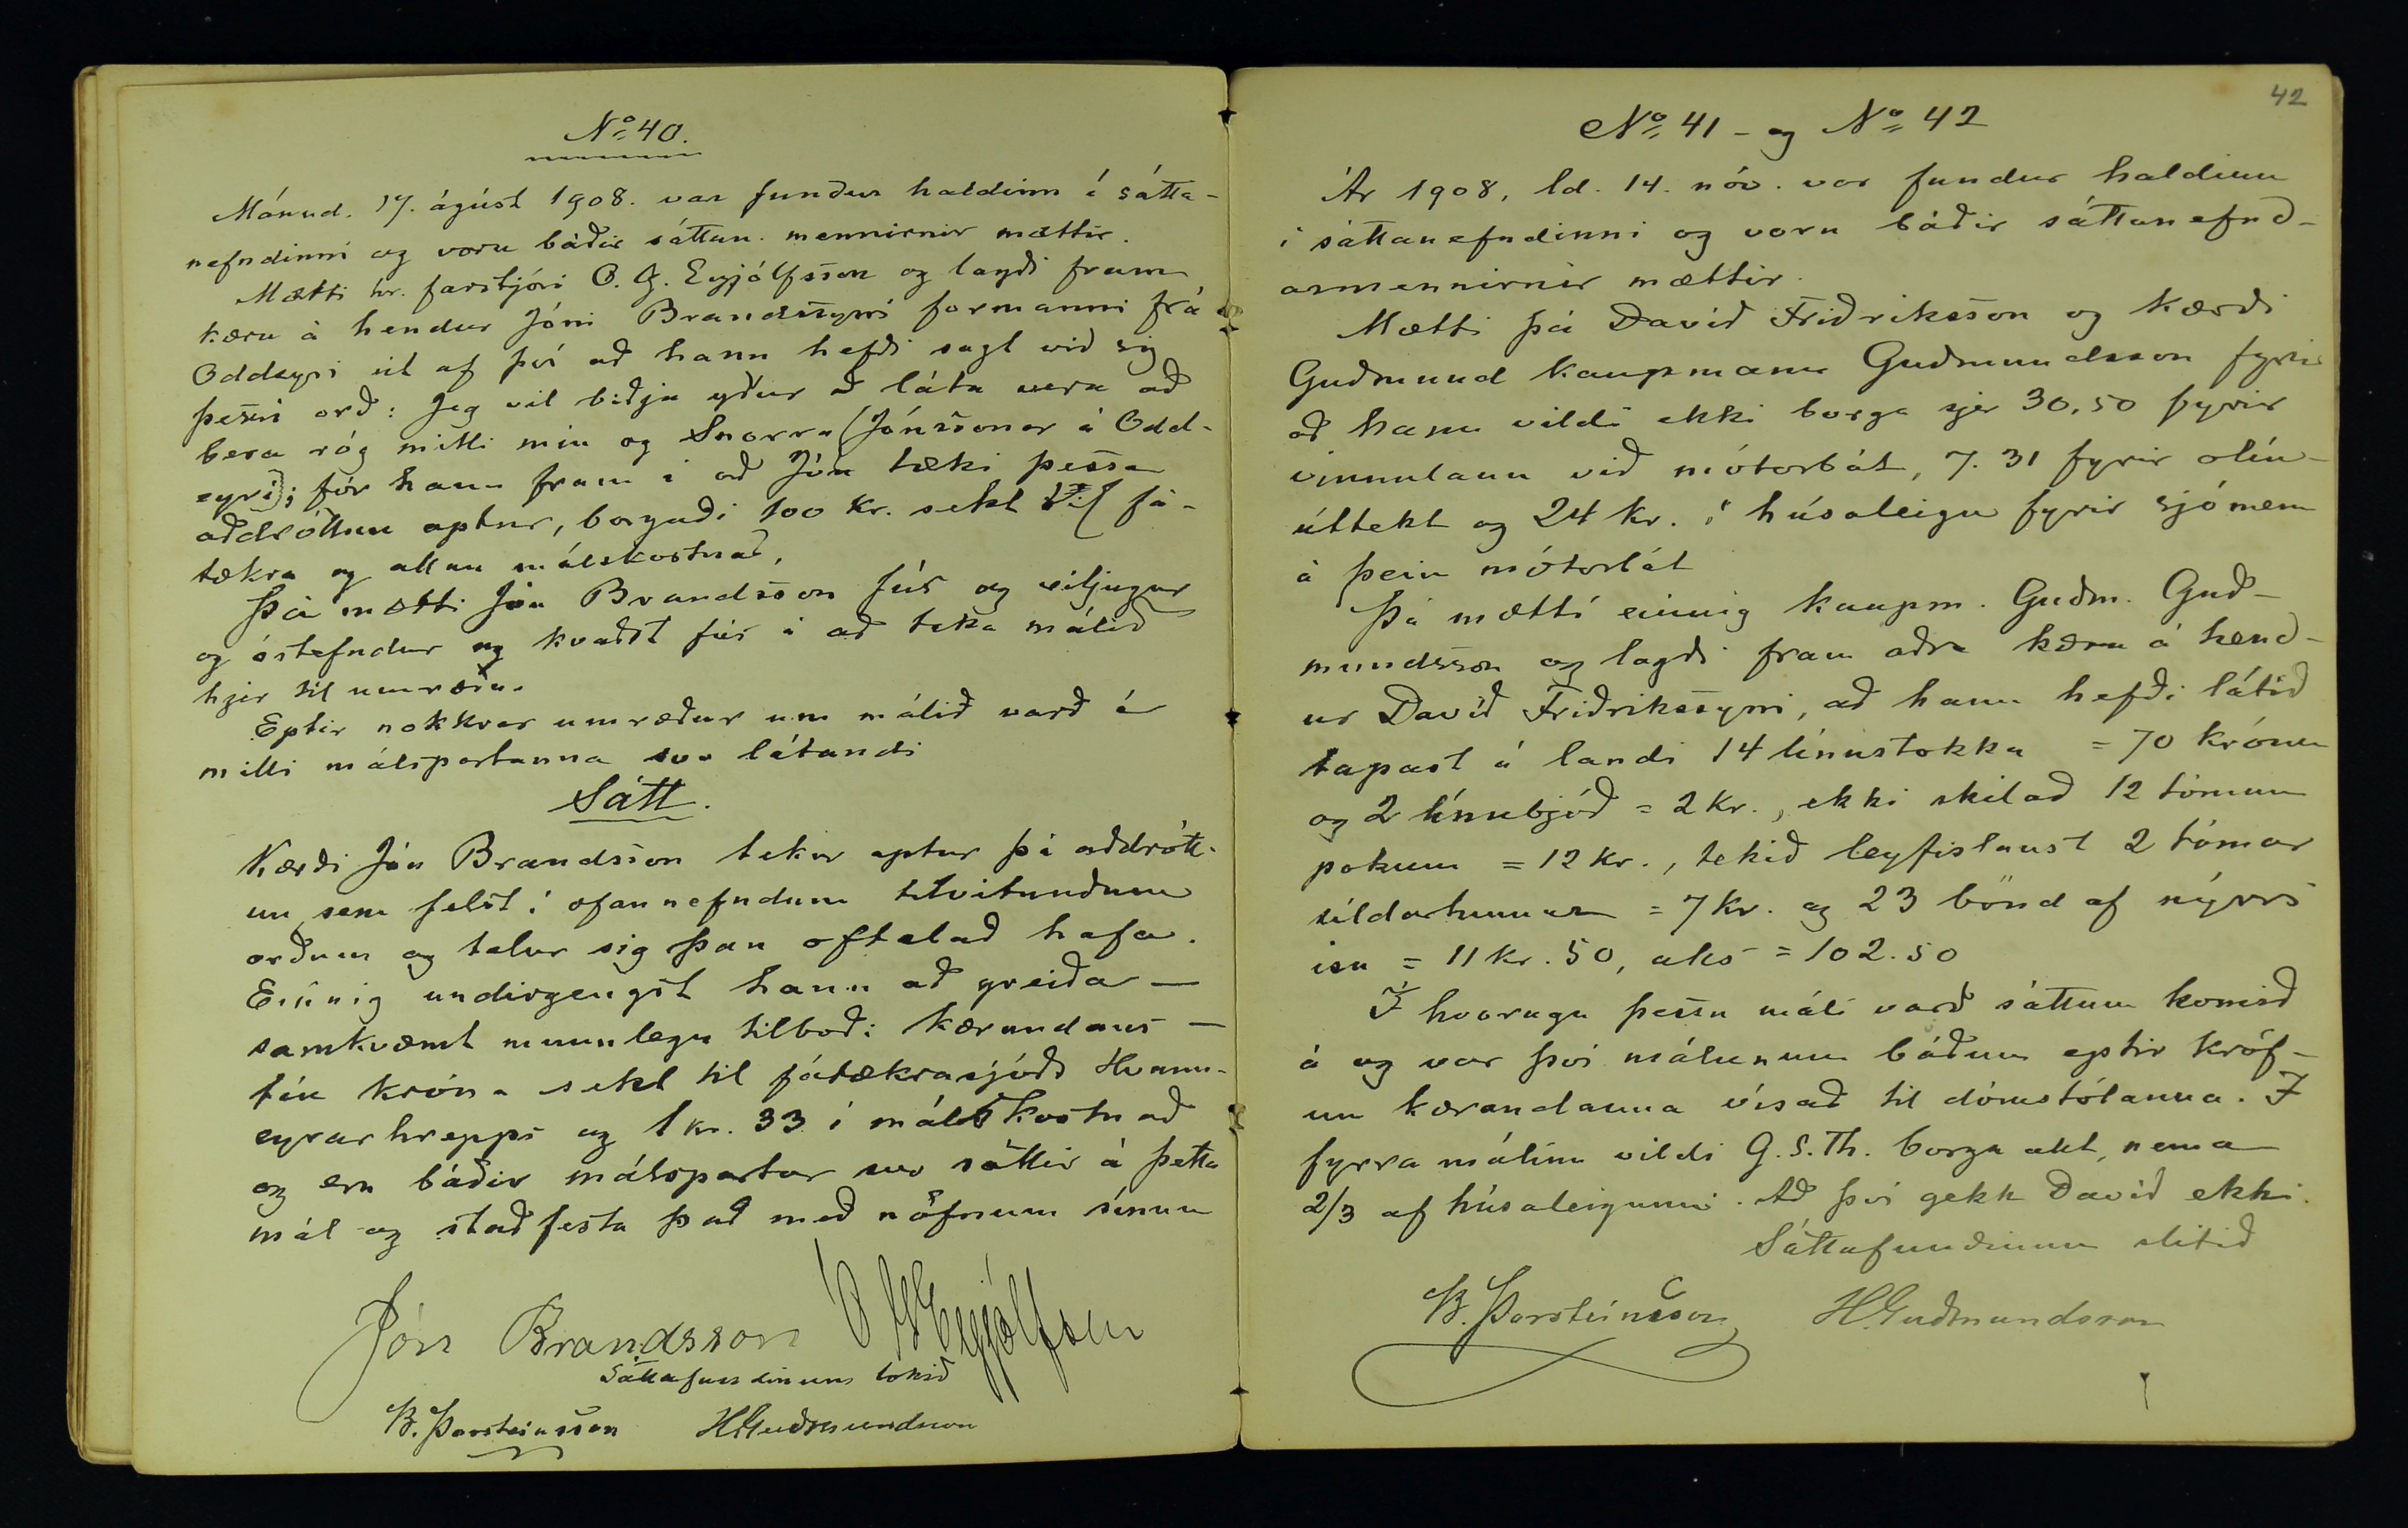 No. 40.
Mánud. 17. ágúst 1908. var fundur haldinn í sátta-
nefndinni og voru báðir sáttan. mennirnir mættir.
Mætti hr. farstjóri O. G. Eyjólfsson og lagði fram
kæru á hendur Jóni Brandssyni formanni frá
Oddeyri út af því að hann hefði sagt við sig
þessi orð: Jeg vil biðja yður að láta vera að
bera róg milli mín og Snorra (Jónssonar á Odd-
eyri); fór hann fram á að Jón tæki þessa
aðdróttun aptur, borgaði 100 kr. sekt til fá-
tækra og allan málskostnað.
Þá mætti Jón Brandsson fús og viljugur
og óstefndur og kvaðst fús á að taka málið
hjer til umræðu.
Eptir nokkrar umræður um málið varð á
milli málspartanna svo látandi
Sátt.
Kærði Jón Brandsson tekur aptur þá aðdrótt-
un sem felst í ofannefndum tilvitnuðum
orðum og telur sig þau oftalað hafa.
Einnig undirgengst hann að greiða —
samkvæmt munnlegu tilboði kærandans —
tíu króna sekt til fátækrasjóðs Hvann-
eyrarhrepps og 1 kr. 33 í málskostnað
og eru báðir málspartar svo sáttir á þetta
mál og staðfesta það með nöfnum sínum
Jón Brandsson O G Eyjólfsson
Sáttafundinum lokið
B. Þorsteinsson H Guðmundsson
42
No. 41 - og No. 42
Ár 1908, ld. 14. nóv. var fundur haldinn
í sáttanefndinni og voru báðir sáttanefnd-
armennirnir mættir.
Mætti þá Davíð Friðriksson og kærði
Guðmund kaupmann Guðmundsson fyrir
að hann vildi ekki borga sjer 30,50 fyrir
vinnulaun við mótorbát, 7.31 fyrir olíu-
úttekt og 24 kr. í húsaleigu fyrir sjómenn
á þeim mótorbát
Þá mætti einnig kaupm. Guðm. Guð-
mundsson og lagði fram aðra kæru á hend-
ur Davíð Friðrikssyni, að hann hefði látið
tapast á landi 14 línustokka = 70 krónur
og 2 línubjóð = 2 kr., ekki skilað 12 tómum
pokum = 12 kr., tekið leyfislaust 2 tómar
síldartunnur = 7 kr. og 23 bönd af nýrri
ísu = 11 kr. 50, alls = 102.50
Í hvorugu þessu máli varð sáttum komið
á og var því málunum báðum eptir kröf-
um kærandanna vísað til dómstólanna. Í
fyrra málinu vildi G. S. Th. borga allt, nema
2/3 af húsaleigunni. Að því gekk Davíð ekki.
Sáttafundinum slitið
B. Þorsteinsson H Guðmundsson